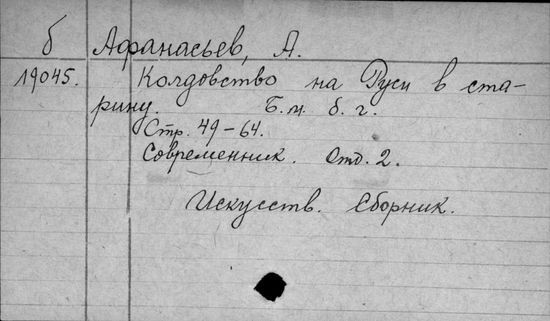 б Афанасьев, А.
19045. Колдовство на Руси в ста-
рину. Б.м. б.г.
Стр. 49-64.
Современник. Отд. 2.
Искусств. Сборник.